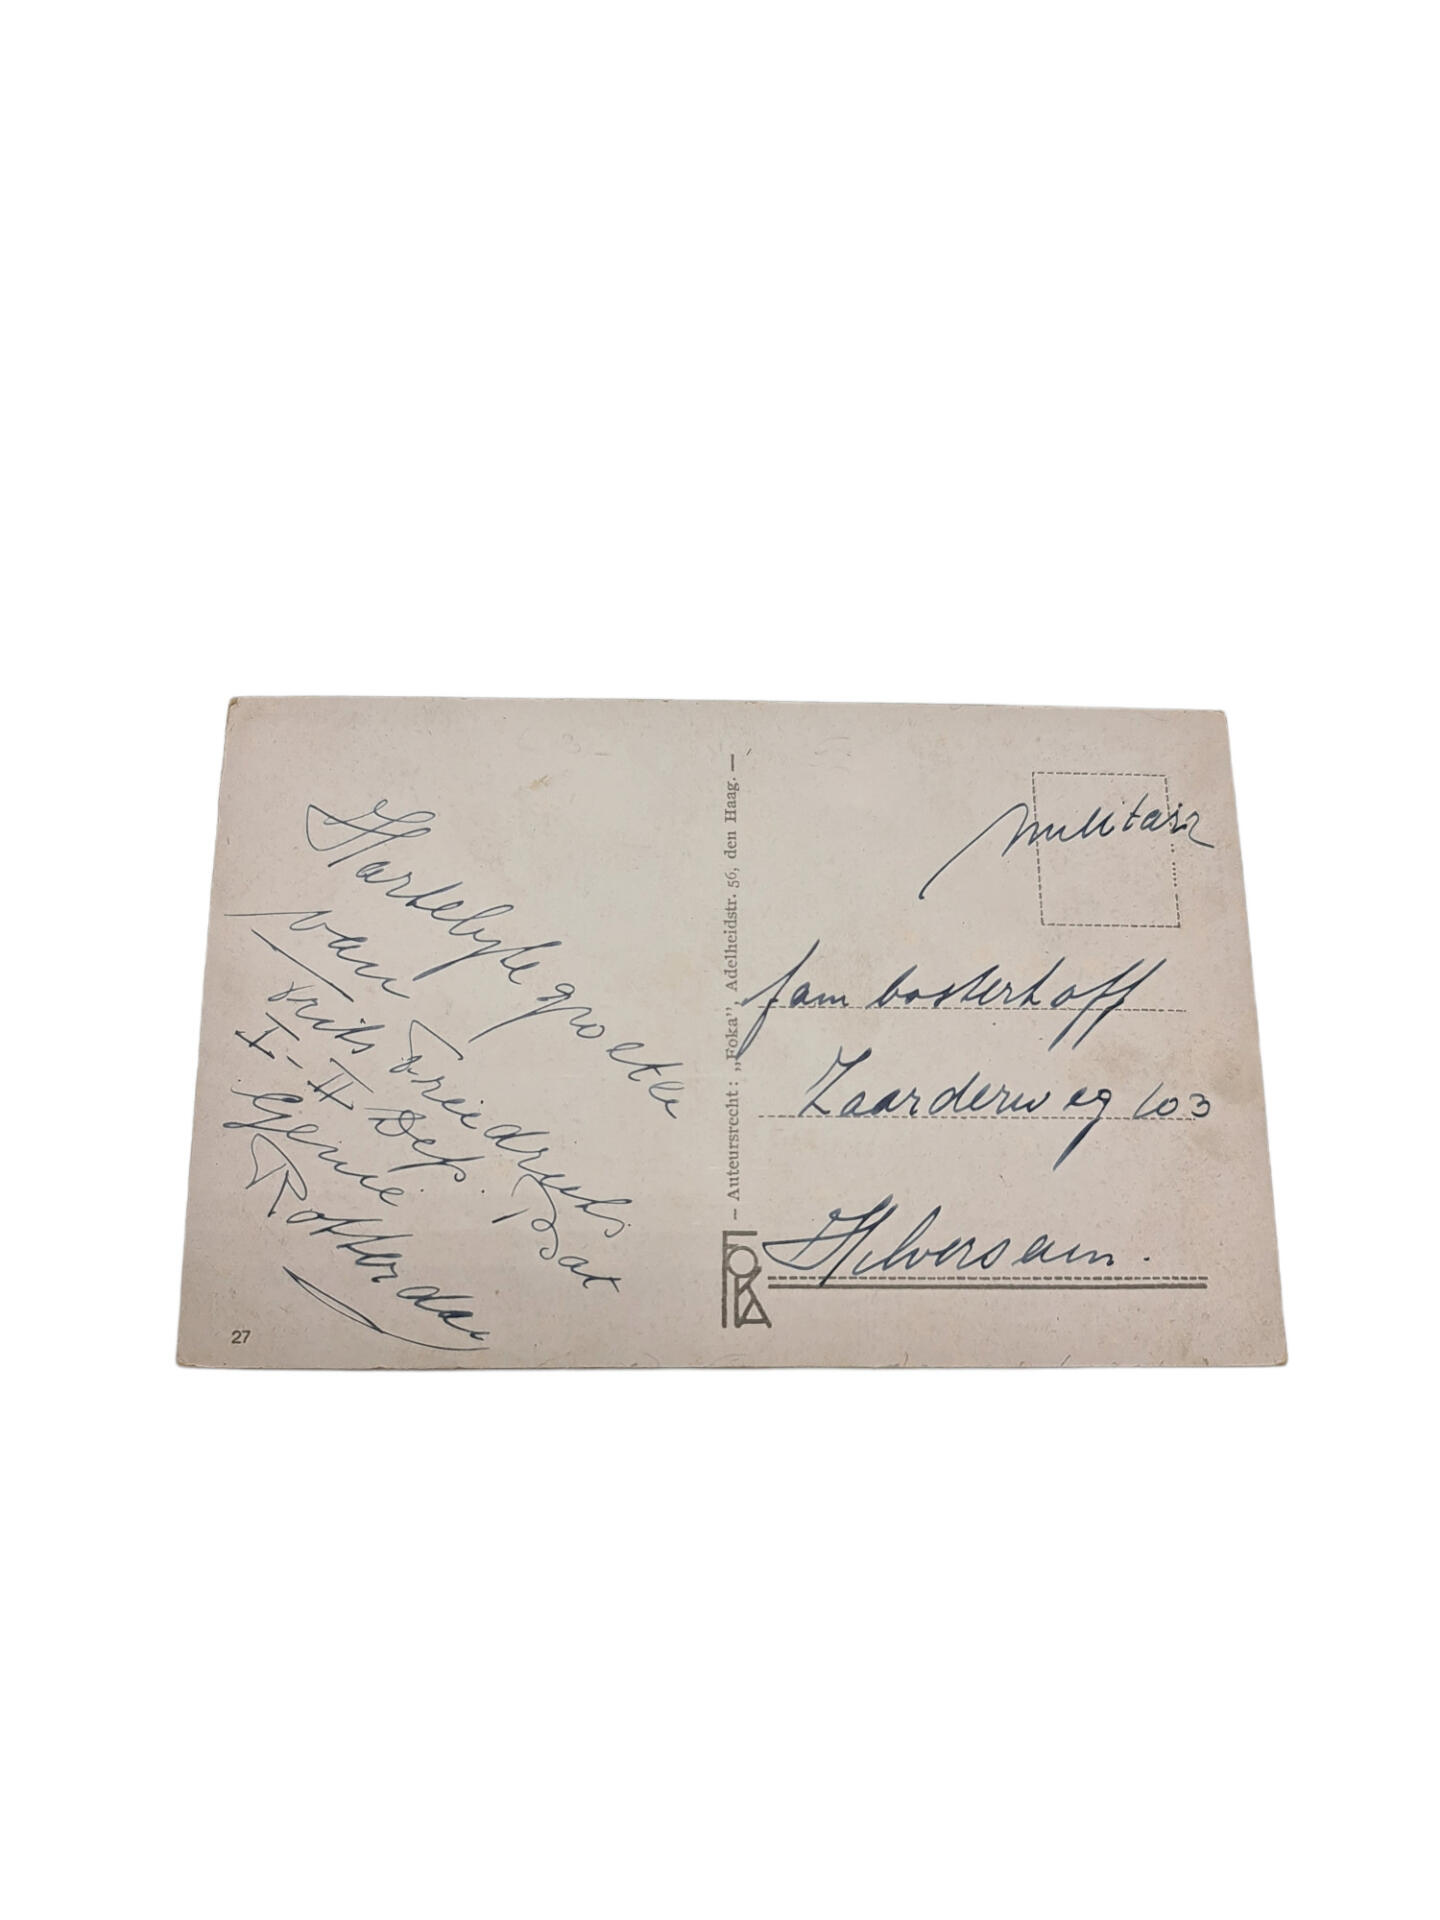 Hartelyke groeten
van Friedrichs
Frits
I-II Dep. Bat
Genie
Rotterdam
— Auteursrecht: „Foka", Adelheidstr. 56, den Haag. —
FOKA
militair
fam bosterhoff
Laarderweg 103
Hilversum.
27